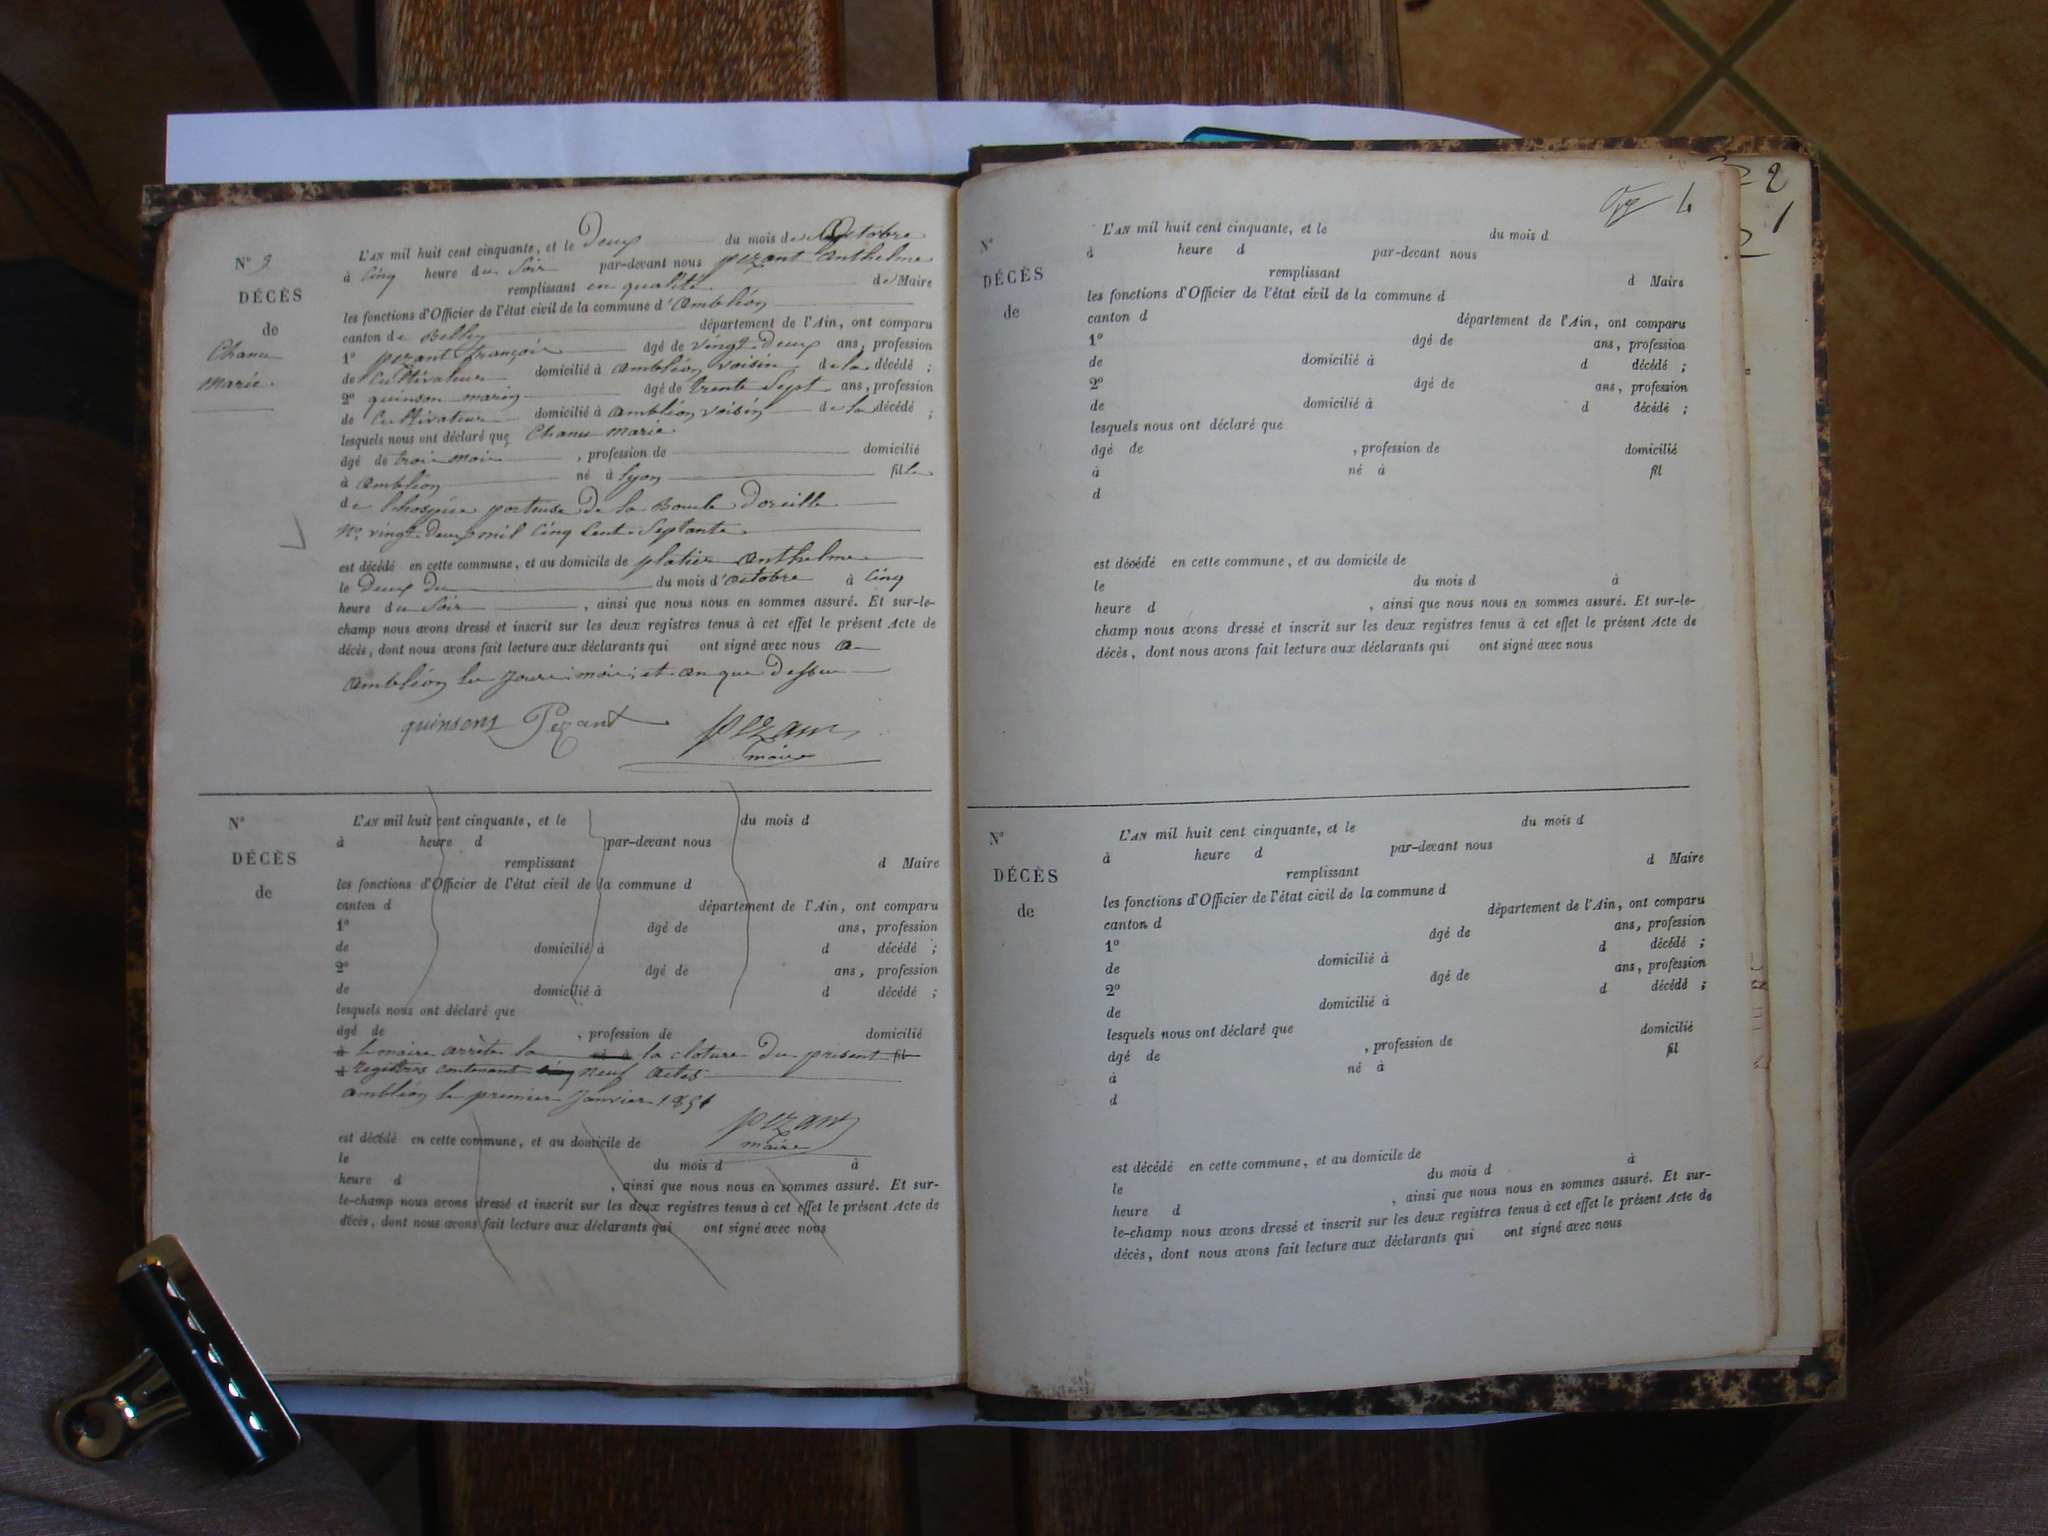 N° 9
DÉCÈS
de
Chanu
Marie.
L'AN mil huit cent cinquante, et le Deux du mois de Octobre
à Cinq heure du Soir par-devant nous pezant Anthelme
remplissant en qualité de Maire
les fonctions d'Officier de l'état civil de la commune d'Ambléon
canton de Belley département de l'Ain, ont comparu
1° pezant françois âgé de vingt-Deux ans, profession
de Cultivateur domicilié à Ambléon voisin de la décédé ;
2° quinson marin âgé de trente Sept ans, profession
de Cultivateur domicilié à Ambléon voisin de la décédé ;
lesquels nous ont déclaré que Chanu Marie
âgé de trois Mois , profession de domicilié
à Ambléon né à lyon fille
de lhospice porteuse de la Boucle Doreille
N°. vingt-Deux mil Cinq Cent Septante
est décédé en cette commune, et au domicile de platier Anthelme
le Deux du du mois d'octobre à Cinq
heure du Soir , ainsi que nous nous en sommes assuré. Et sur-le-
champ nous avons dressé et inscrit sur les deux registres tenus à cet effet le présent Acte de
décès, dont nous avons fait lecture aux déclarants qui ont signé avec nous a
Ambléon les Jour, mois, et an que Dessus
quinson Pezant pezant
maire
N°
DÉCÈS
de
L'AN mil huit cent cinquante, et le du mois d
à heure d par-devant nous
remplissant d Maire
les fonctions d'Officier de l'état civil de la commune d
canton d département de l'Ain, ont comparu
1° âgé de ans, profession
de domicilié à d décédé ;
2° âgé de ans, profession
de domicilié à d décédé ;
lesquels nous ont déclaré que
âgé de , profession de domicilié
à le maire arrète la né à la cloture du présent fil
d registres contenant neuf actes
Ambléon le premier Janvier 1851
pezant
maire
est décédé en cette commune, et au domicile de
le du mois d à
heure d , ainsi que nous nous en sommes assuré. Et sur-
le-champ nous avons dressé et inscrit sur les deux registres tenus à cet effet le présent Acte de
décès, dont nous avons fait lecture aux déclarants qui ont signé avec nous
4
2
1
N°
DÉCÈS
de
L'AN mil huit cent cinquante, et le du mois d
à heure d par-devant nous
remplissant d Maire
les fonctions d'Officier de l'état civil de la commune d
canton d département de l'Ain, ont comparu
1° âgé de ans, profession
de domicilié à d décédé ;
2° âgé de ans, profession
de domicilié à d décédé ;
lesquels nous ont déclaré que
âgé de , profession de domicilié
à né à fil
d
est décédé en cette commune, et au domicile de
le du mois d à
heure d , ainsi que nous nous en sommes assuré. Et sur-le-
champ nous avons dressé et inscrit sur les deux registres tenus à cet effet le présent Acte de
décès, dont nous avons fait lecture aux déclarants qui ont signé avec nous
N°
DÉCÈS
de
L'AN mil huit cent cinquante, et le du mois d
à heure d par-devant nous
remplissant d Maire
les fonctions d'Officier de l'état civil de la commune d
canton d département de l'Ain, ont comparu
1° âgé de ans, profession
de domicilié à d décédé ;
2° âgé de ans, profession
de domicilié à d décédé ;
lesquels nous ont déclaré que
âgé de , profession de domicilié
à né à fil
d
est décédé en cette commune, et au domicile de
le du mois d à
heure d , ainsi que nous nous en sommes assuré. Et sur-
le-champ nous avons dressé et inscrit sur les deux registres tenus à cet effet le présent Acte de
décès, dont nous avons fait lecture aux déclarants qui ont signé avec nous